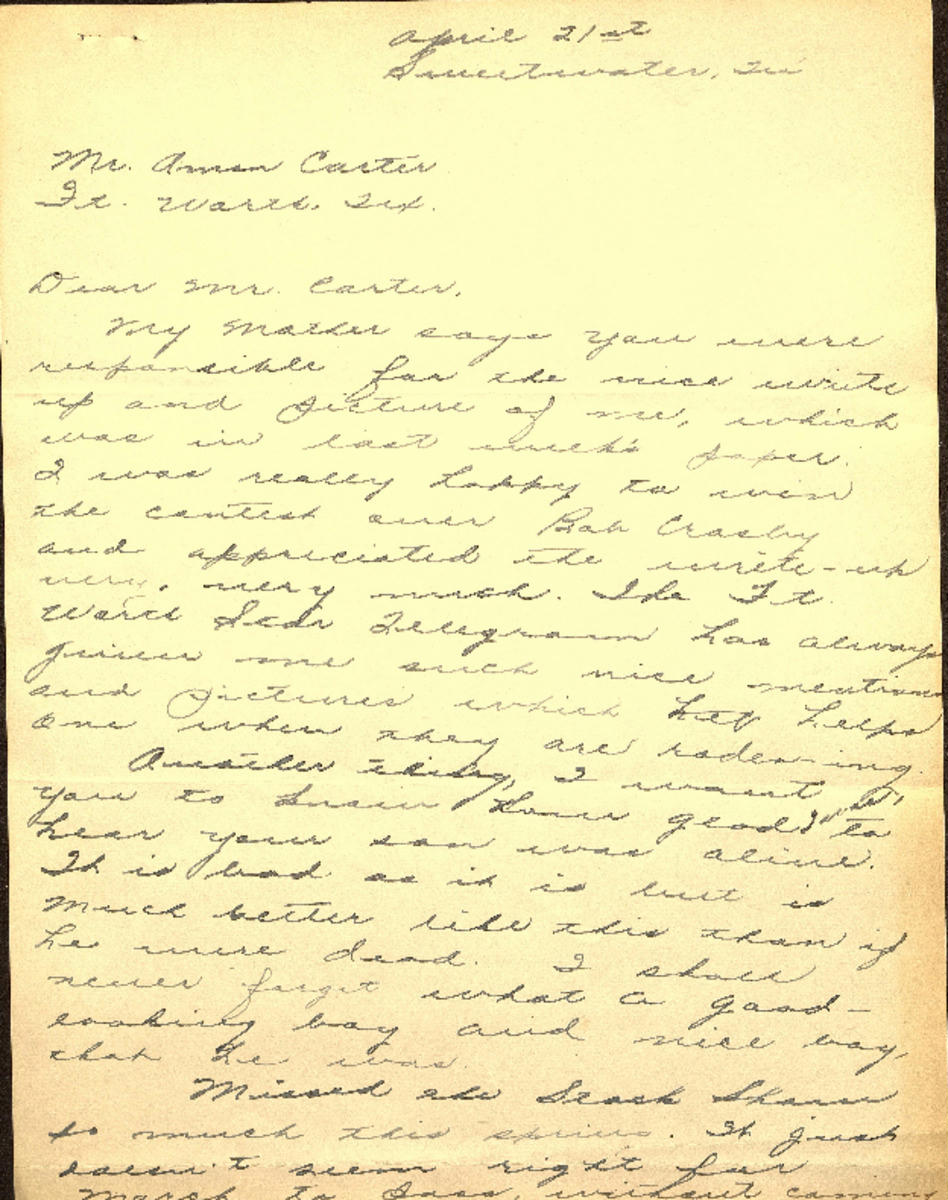 April 21st
Sweetwater, Tex
Mr. Amon Carter
Ft. Worth, Tex.
Dear Mr. Carter,
My Mother says you were
responsible for the nice write
up and picture of me, which
was in last week's paper.
I was really happy to win
the contest over Bob Crosby
and appriciated the write-up
very, very much. The Ft.
Worth Star Telegram has always
given me such nice mentions
and pictures which helps
one when they are rodeo-ing.
Another thing, I want
you to know how glad I was to
hear your son was alive.
It is bad as it is but is
much better like this than if
he were dead. I shall
never forget what a good-
looking boy and nice boy,
that he was.
Missed the Stock Show
so much this spring. It just
doesn't seem right for
March to pass, without coming